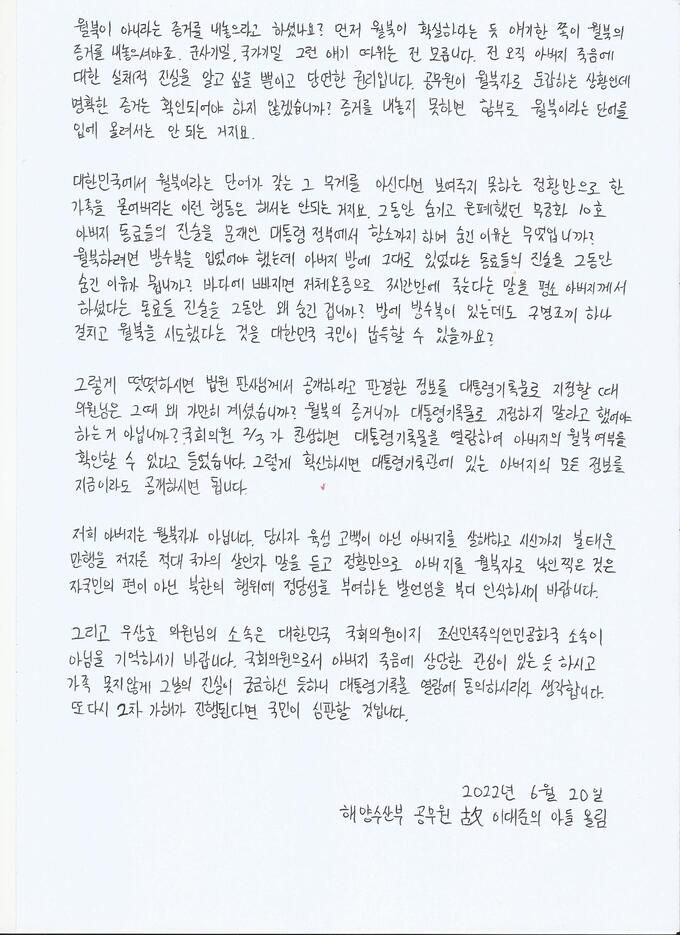 월북이 아니라는 증거를 내놓으라고 하셨나요? 먼저 월북이 확실하다는 듯 얘기한 쪽이 월북의
증거를 내놓으셔야죠. 군사기밀, 국가기밀 그런 얘기 따위는 전 모릅니다. 전 오직 아버지 죽음에
대한 실체적 진실을 알고 싶을 뿐이고 당연한 권리입니다. 공무원이 월북자로 둔갑하는 상황인데
명확한 증거는 확인되어야 하지 않겠습니까? 증거를 내놓지 못하면 함부로 월북이라는 단어를
입에 올려서는 안 되는 거지요.
대한민국에서 월북이라는 단어가 갖는 그 무게를 아신다면 보여주지 못하는 정황만으로 한
가족을 묻어버리는 이런 행동은 해서는 안되는 거지요. 그동안 숨기고 은폐했던 무궁화 10호
아버지 동료들의 진술을 문재인 대통령 정부에서 항소까지 하며 숨긴 이유는 무엇입니까?
월북하려면 방수복을 입었어야 했는데 아버지 방에 그대로 있었다는 동료들의 진술을 그동안
숨긴 이유가 뭡니까? 바다에 빠지면 저체온증으로 3시간만에 죽는다는 말을 평소 아버지께서
하셨다는 동료들 진술을 그동안 왜 숨긴 겁니까? 방에 방수복이 있는데도 구명조끼 하나
걸치고 월북을 시도했다는 것을 대한민국 국민이 납득할 수 있을까요?
그렇게 떳떳하시면 법원 판사님께서 공개하라고 판결한 정보를 대통령기록물로 지정할 때
의원님은 그때 왜 가만히 계셨습니까? 월북의 증거니까 대통령기록물로 지정하지 말라고 했어야
하는거 아닙니까? 국회의원 2/3가 찬성하면 대통령기록물을 열람하여 아버지의 월북 여부를
확인할 수 있다고 들었습니다. 그렇게 확신하시면 대통령기록관에 있는 아버지의 모든 정보를
지금이라도 공개하시면 됩니다.
저희 아버지는 월북자가 아닙니다. 당사자 육성 고백이 아닌 아버지를 살해하고 시신까지 불태운
만행을 저지른 적대 국가의 살인자 말을 듣고 정황만으로 아버지를 월북자로 낙인 찍은 것은
자국민의 편이 아닌 북한의 행위에 정당성을 부여하는 발언임을 부디 인식하시기 바랍니다.
그리고 우상호 의원님의 소속은 대한민국 국회의원이지 조선민주주의인민공화국 소속이
아님을 기억하시기 바랍니다. 국회의원으로서 아버지 죽음에 상당한 관심이 있는 듯 하시고
가족 못지않게 그날의 진실이 궁금하신 듯하니 대통령기록물 열람에 동의하시리라 생각합니다.
또 다시 2차 가해가 진행된다면 국민이 심판할 것입니다.
2022년 6월 20일
해양수산부 공무원 故 이대준의 아들 올림